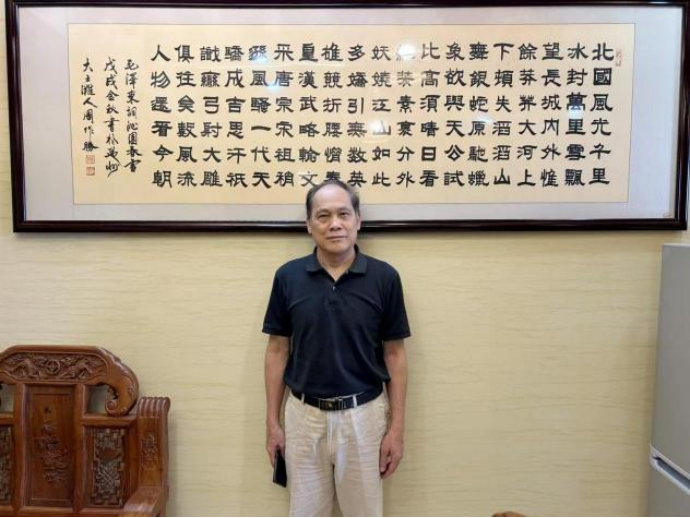 北國風光千里
冰封萬里雪飄
望長城內外惟
餘莽莽大河上
下頓失滔滔山
舞銀蛇原馳蠟
象欲與天公試
比高須晴日看
紅裝素裹分外
妖嬈江山如此
多嬌引無數英
雄競折腰惜秦
皇漢武略輸文
采唐宗宋祖稍
遜風騷一代天
驕成吉思汗祇
識彎弓射大雕
俱往矣數風流
人物還看今朝
毛澤東詞沁園春雪
戊戌金秋書於惠州
灘人周作勝